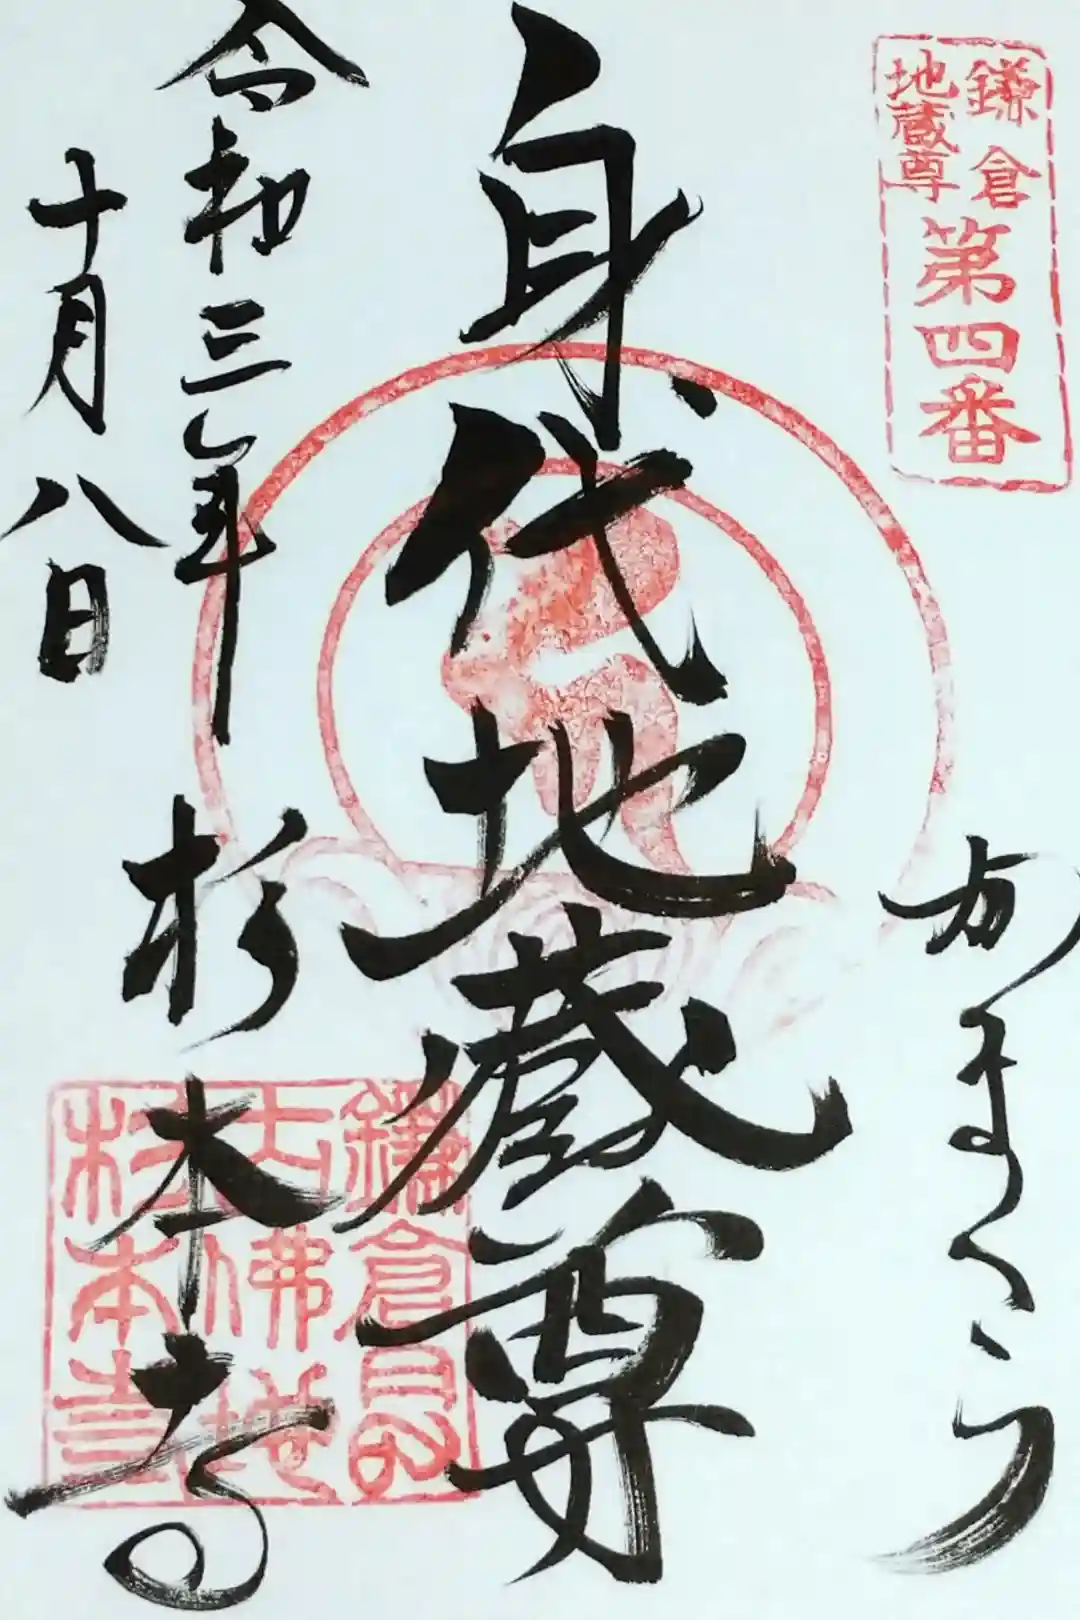 鎌倉
地蔵尊
第四番
かまくら
身代地蔵尊
令和三年
十月八日
杉本寺
鎌倉最
古佛地
杉本寺